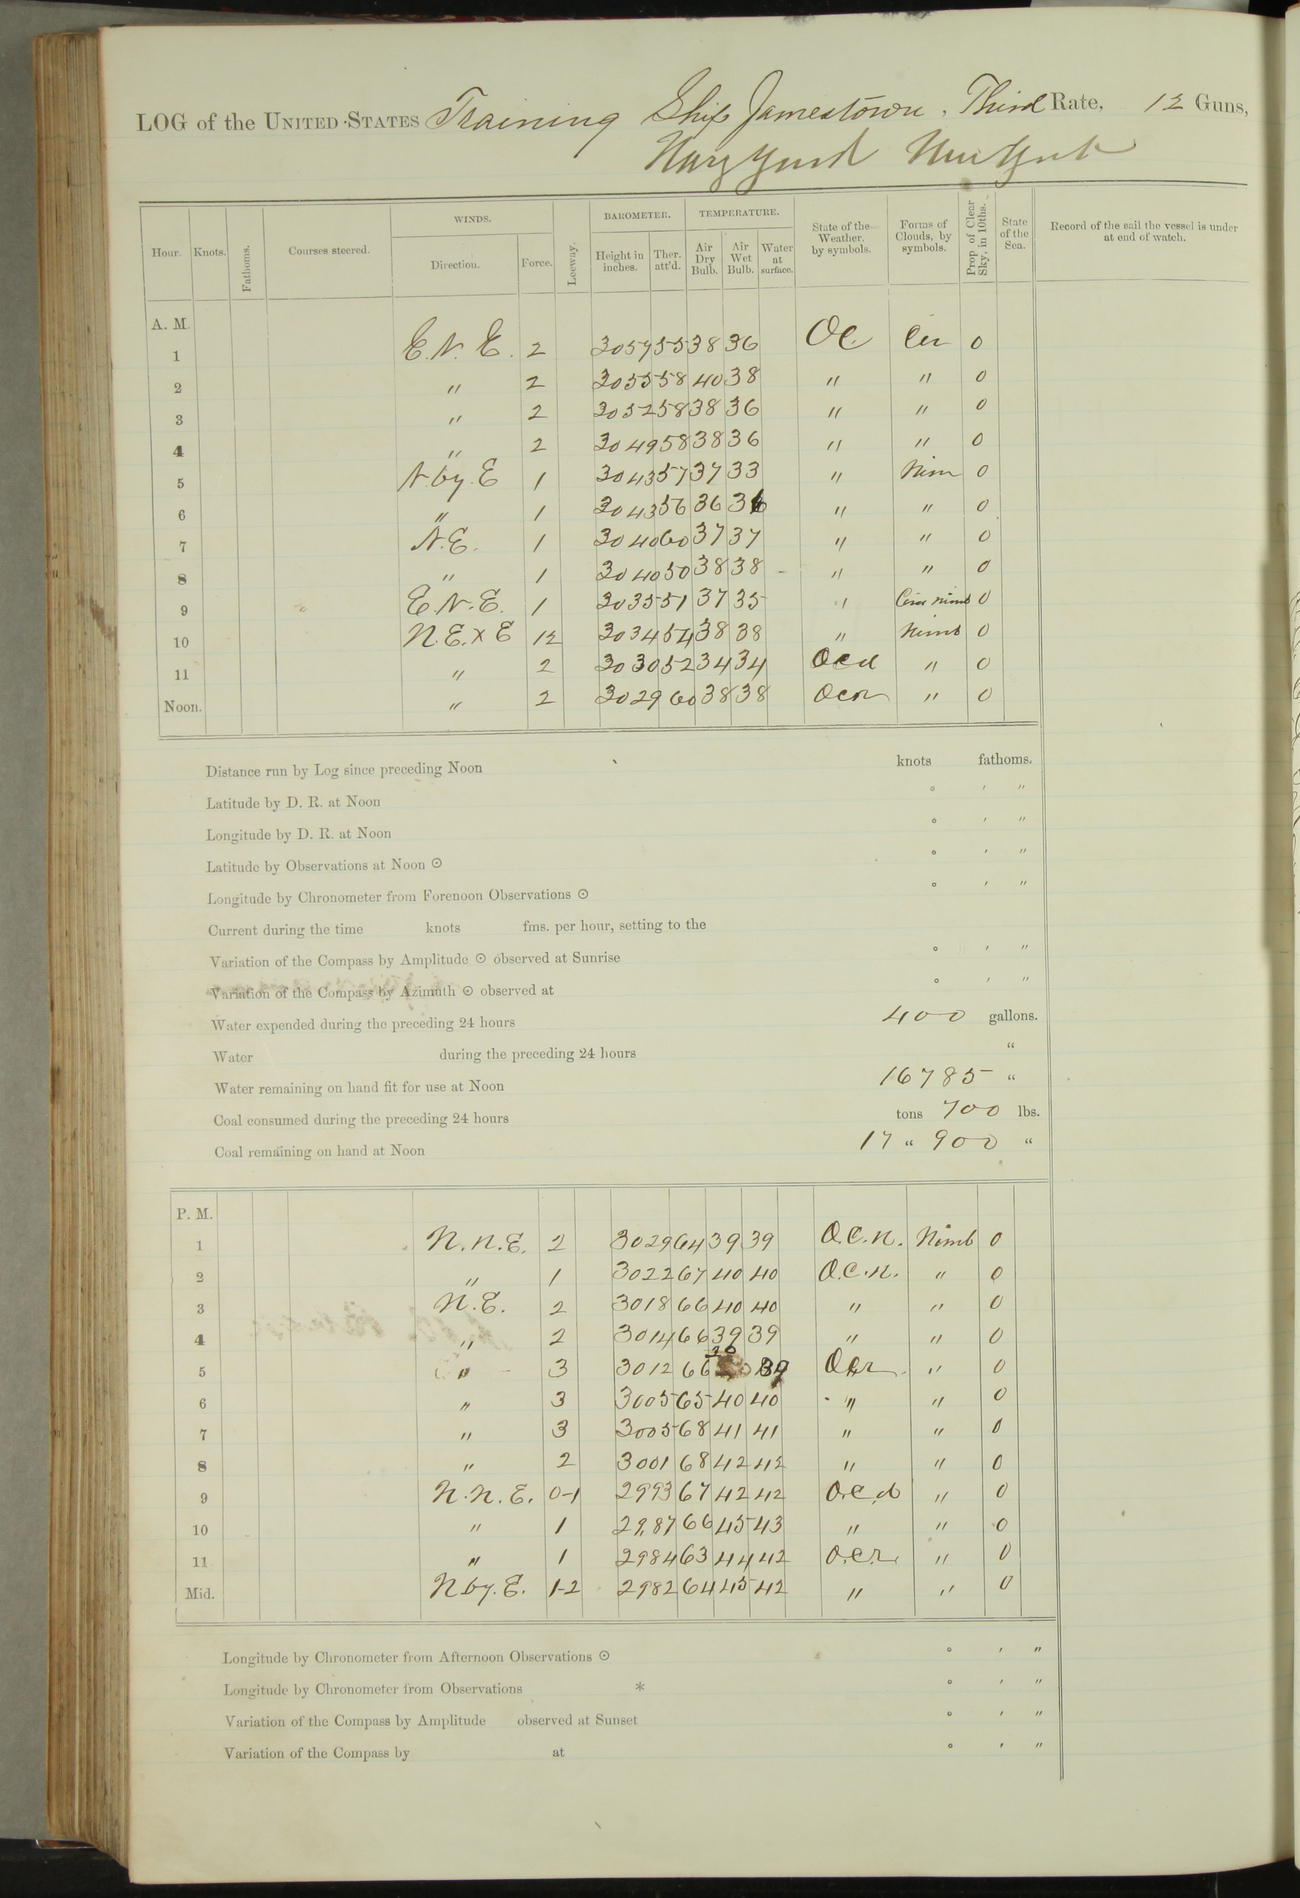 LOG of the UNITED STATES Training Ship Jamestown, Third Rate, 12 Guns,
Navy Yard New York
Hour. Knots. Fathoms. Courses steered. WINDS. Direction. Force. Leeway. BAROMETER. Height in inches. Ther. att'd. TEMPERATURE. Air Dry Bulb. Air Wet Bulb. Water at surface. State of the Weather, by symbols. Forms of Clouds, by symbols. Prop. of Clear Sky, in 10ths. State of the Sea. Record of the sail the vessel is under at end of watch.
A. M.
1 E.N.E. 2 3057 55 38 36 OC Cir 0
2 " 2 3055 58 40 38 " " 0
3 " 2 3052 58 38 36 " " 0
4 " 2 3049 58 38 36 " " 0
5 N.by.E 1 3043 57 37 33 " Nim 0
6 " 1 3043 56 36 36 " " 0
7 N.E. 1 3040 60 37 37 " " 0
8 " 1 3040 50 38 38 " " 0
9 E.N.E. 1 3035 51 37 35 " 0
10 N.E.xE 12 3034 54 38 38 " Nimb 0
11 " 2 3030 52 34 34 Ocd " 0
Noon. " 2 3029 60 38 38 " 0
Distance run by Log since preceding Noon knots fathoms.
Latitude by D. R. at Noon ° ' "
Longitude by D. R. at Noon ° ' "
Latitude by Observations at Noon ⊙ ° ' "
Longitude by Chronometer from Forenoon Observations ⊙ ° ' "
Current during the time knots fms. per hour, setting to the
Variation of the Compass by Amplitude ⊙ observed at Sunrise ° ' "
Variation of the Compass by Azimuth ⊙ observed at ° ' "
Water expended during the preceding 24 hours 400 gallons.
Water during the preceding 24 hours "
Water remaining on hand fit for use at Noon 16785 "
Coal consumed during the preceding 24 hours tons 700 lbs.
Coal remaining on hand at Noon 17 " 900 "
P. M.
1 N.N.E. 2 3029 64 39 39 O.C.N. Nimb 0
2 " 1 3022 67 40 40 O.C.N. " 0
3 N.E. 2 3018 66 40 40 " " 0
4 " 2 3014 66 39 39 " " 0
5 " 3 3012 66 39 Ocr " 0
6 " 3 3005 65 40 40 " " 0
7 " 3 3005 68 41 41 " " 0
8 " 2 3001 68 42 42 " " 0
9 N.N.E. 0-1 2993 67 42 42 O.c.d " 0
10 " 1 2987 66 45 43 " " 0
11 " 1 2984 63 44 42 O.c.r. " 0
Mid. N by. E. 1-2 2982 64 45 42 " " 0
Longitude by Chronometer from Afternoon Observations ⊙ ° ' "
Longitude by Chronometer from Observations * ° ' "
Variation of the Compass by Amplitude observed at Sunset ° ' "
Variation of the Compass by at ° ' "